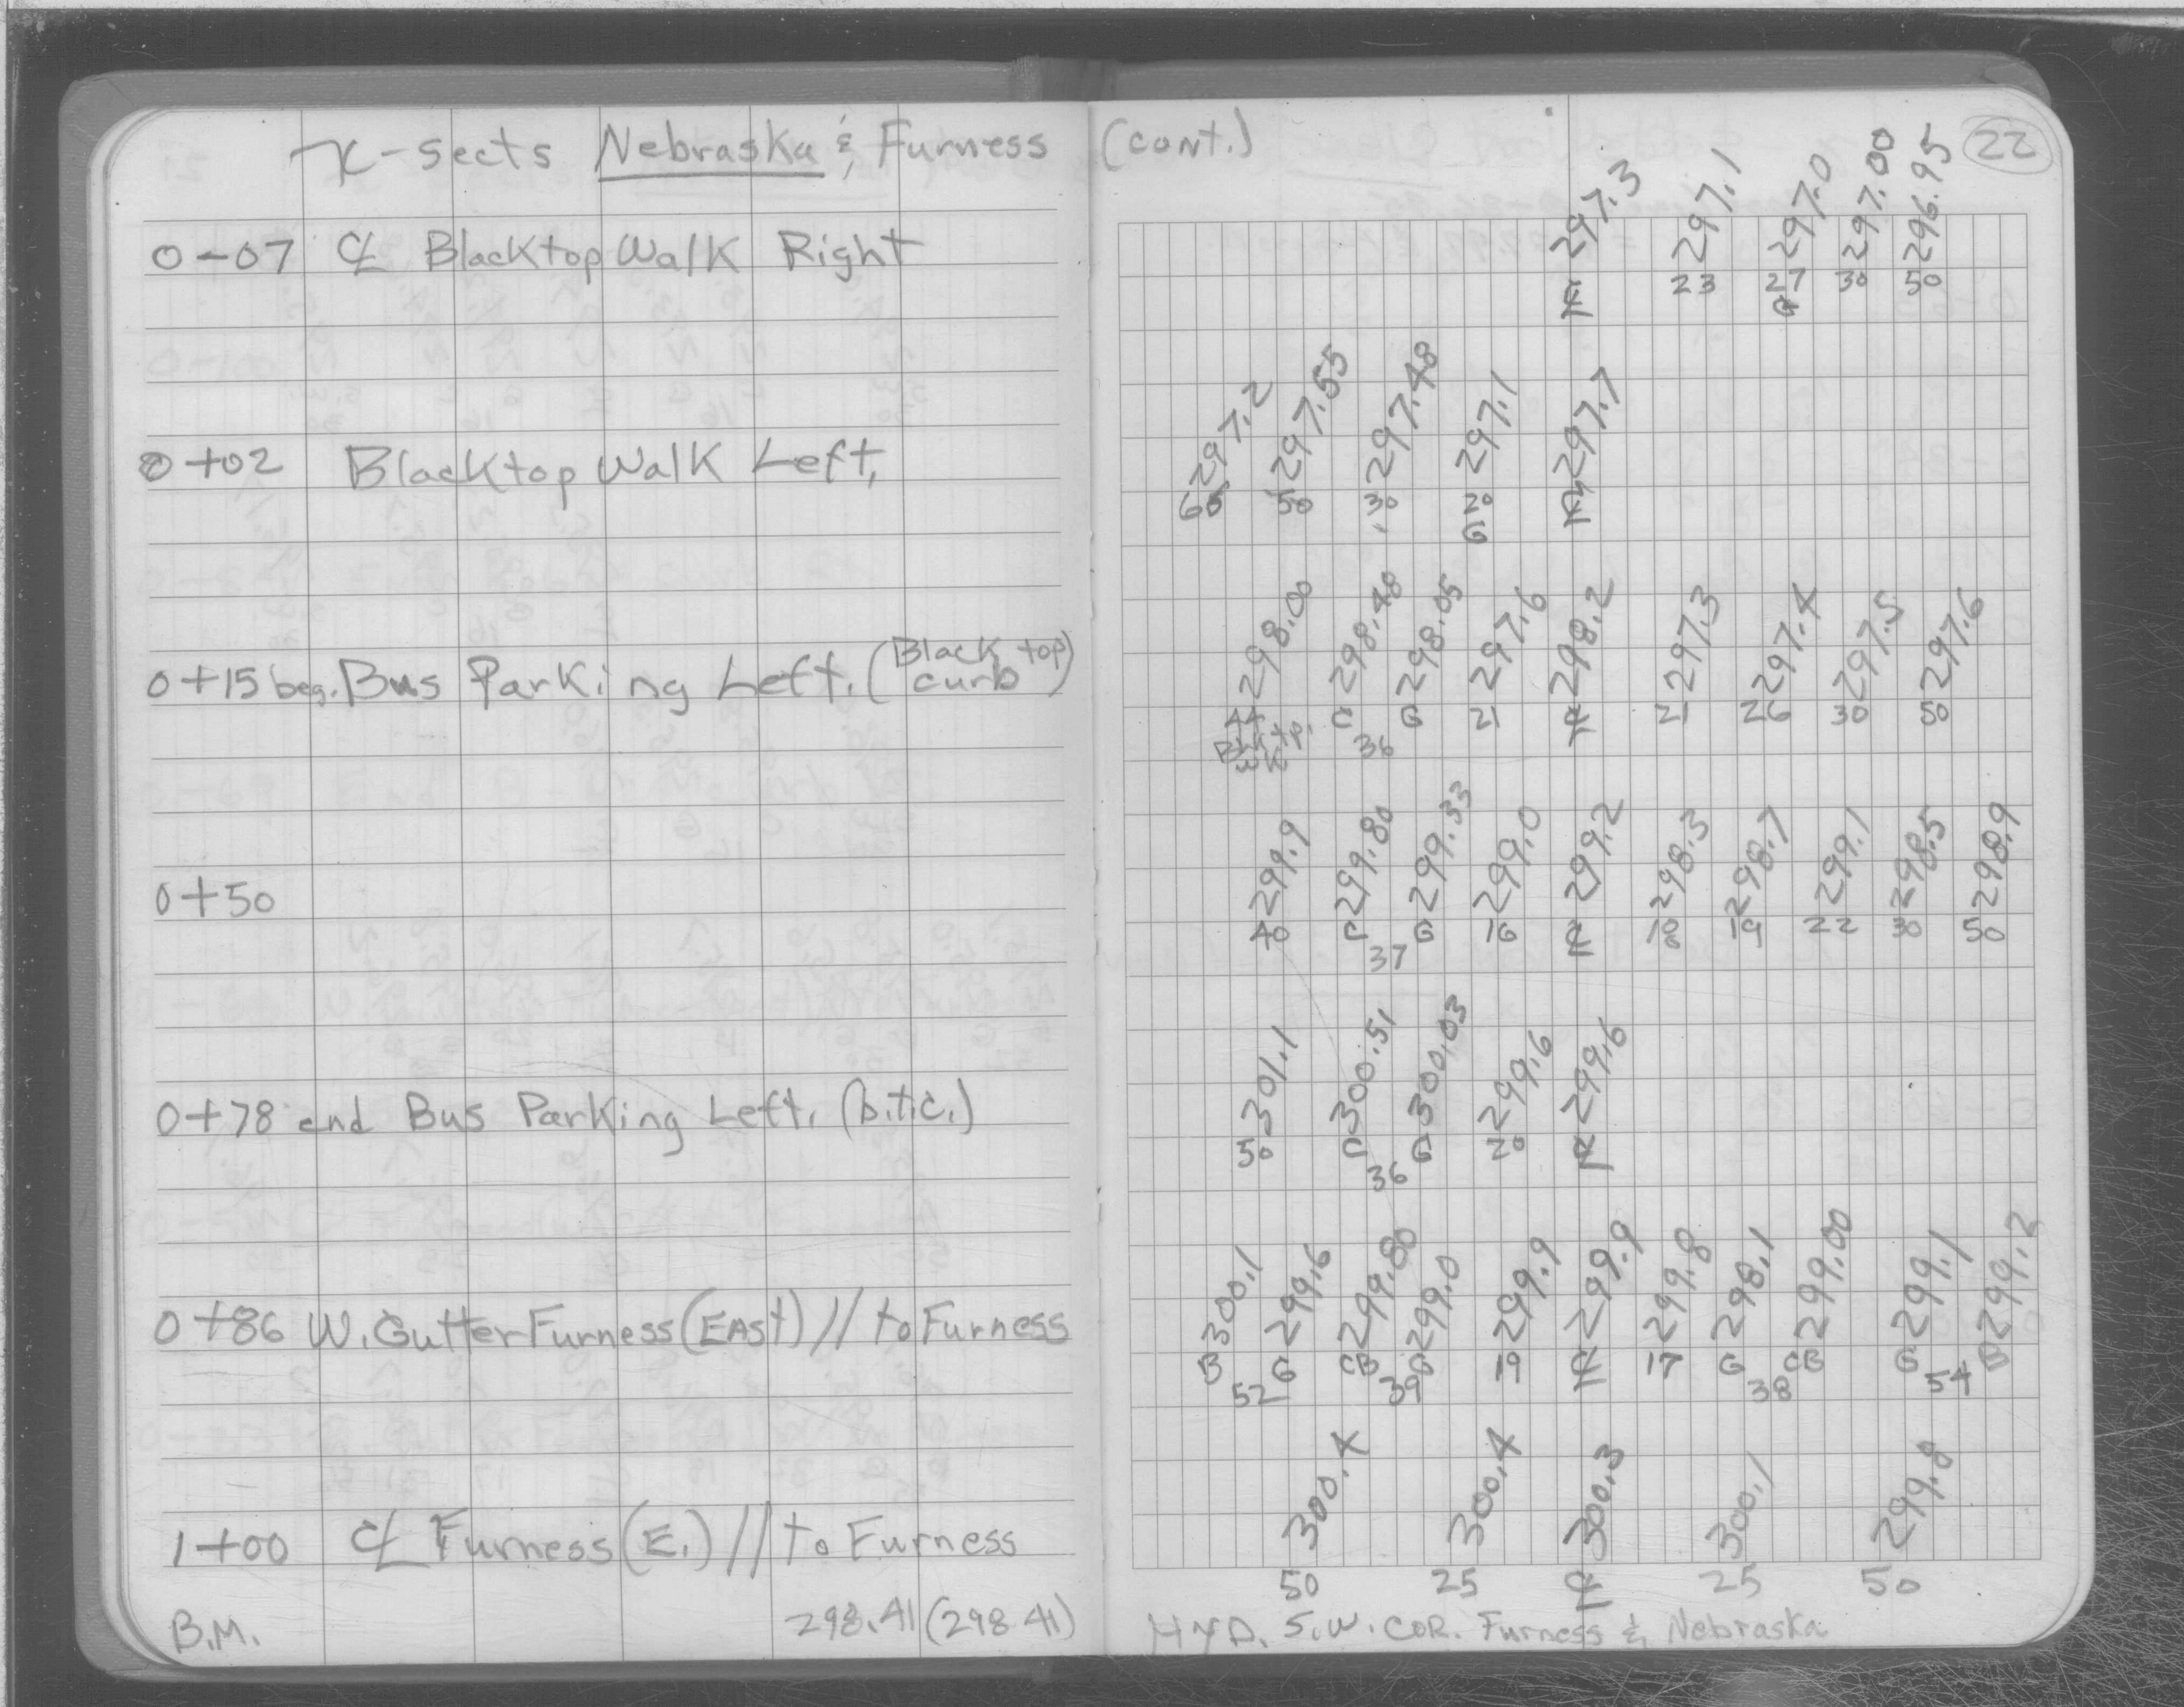 x-sects Nebraska & Furness (cont.) 22
0-07 ℄ Blacktop Walk Right
297.3 297.1 297.0 297.00 296.95
℄ 23 27 30 50
G
0+02 Blacktop Walk Left,
297.2 297.55 297.48 297.1 297.7
50 30 20 ℄
G
0+15 beg. Bus Parking Left. (Black top curb)
298.00 298.48 298.05 297.6 298.2 297.3 297.4 297.5 297.6
44 C G 21 ℄ 21 26 30 50
Blktp. 36
wk
0+50
299.9 299.80 299.33 299.0 299.2 298.3 298.7 299.1 298.5 298.9
40 C G 16 ℄ 18 19 22 30 50
37
0+78 end Bus Parking Left. (b.t.c.)
301.1 300.51 300.03 299.6 299.6
50 C G 20 ℄
36
0+86 W. Gutter Furness (East) // to Furness
300.1 299.6 299.80 299.0 299.9 299.9 299.8 298.1 299.00 299.1 299.2
B G CB G 19 ℄ 17 G CB G B
52 39 38 54
1+00 ℄ Furness (E.) // to Furness
300.4 300.4 300.3 300.1 299.8
50 25 ℄ 25 50
B.M. 298.41 (298.41) HYD. S.W. COR. Furness & Nebraska